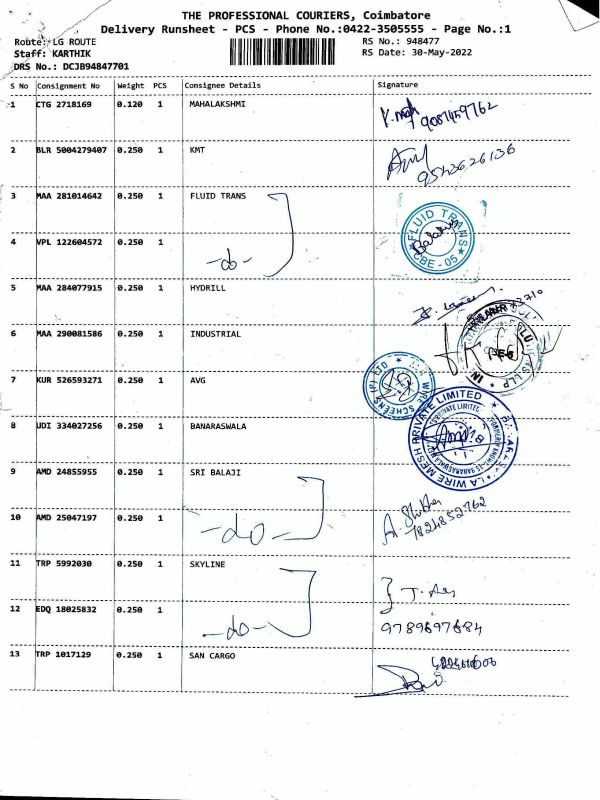 THE PROFESSIONAL COURIERS, Coimbatore
Delivery Runsheet - PCS - Phone No.:0422-3505555 - Page No.:1
Route: LG ROUTE
RS No.: 948477
Staff: KARTHIK
RS Date: 30-May-2022
DRS No.: DCJB94847701
S No Consignment No Weight PCS Consignee Details Signature
1 CTG 2718169 0.120 1 MAHALAKSHMI
2 BLR 5004279407 0.250 1 KMT
3 MAA 281014642 0.250 1 FLUID TRANS
FLUID TRANS
CBE - 05
4 VPL 122604572 0.250 1 -do-
5 MAA 284077915 0.250 1 HYDRILL
6 MAA 290081586 0.250 1 INDUSTRIAL
7 KUR 526593271 0.250 1 AVG
SCREENS (P) LTD
8 UDI 334027256 0.250 1 BANARASWALA
LA WIRE MESH PRIVATE LIMITED
9 AMD 24855955 0.250 1 SRI BALAJI
10 AMD 25047197 0.250 1 -do-
7824852762
11 TRP 5992030 0.250 1 SKYLINE
12 EDQ 18025832 0.250 1 -do-
9789697684
13 TRP 1017129 0.250 1 SAN CARGO